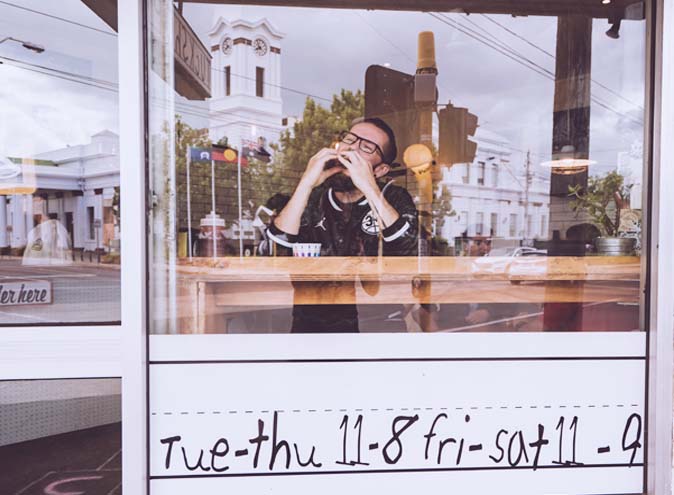 der here
Tue-thu 11-8 fri-sat 11-9